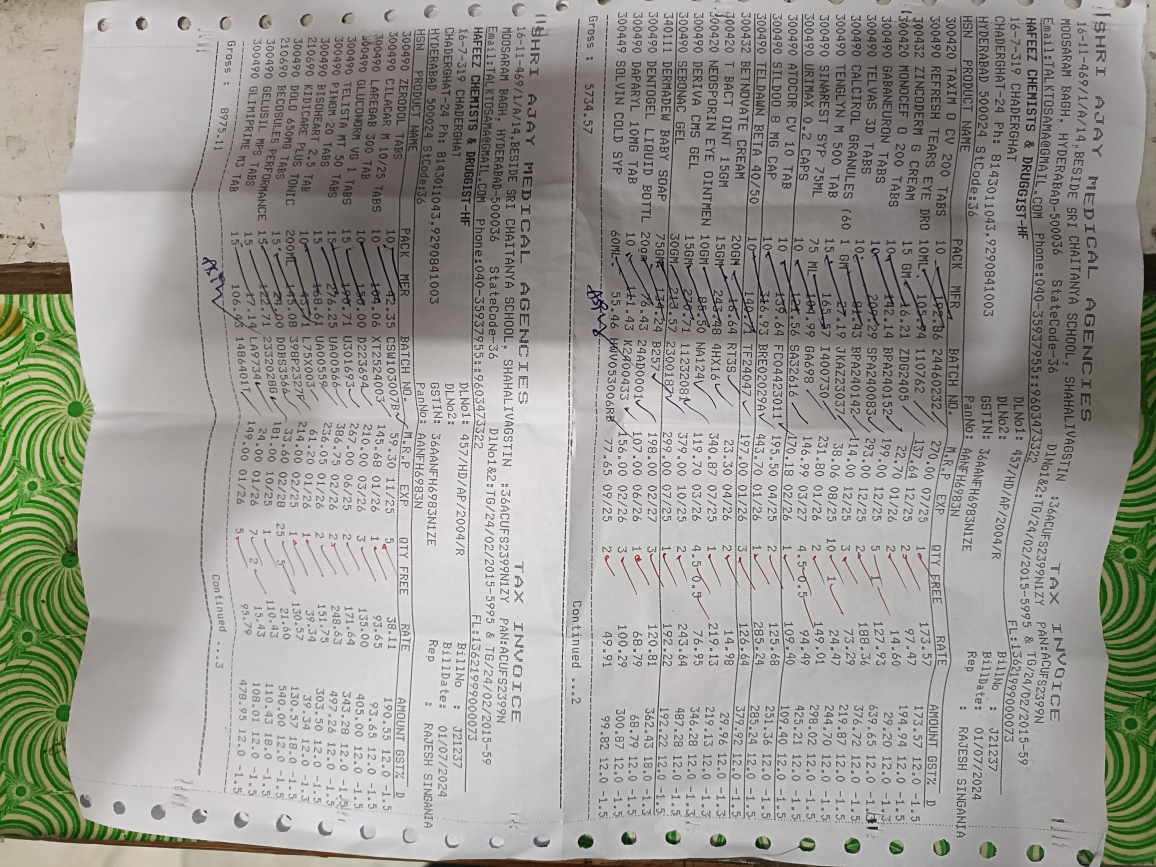 SHRI AJAY MEDICAL AGENCIES TAX INVOICE
16-11-469/1/A/14,BESIDE SRI CHAITANYA SCHOOL, SHAHALIVAGSTIN :36ACUFS2399N1ZY PAN:ACUFS2399N
MOOSARAM BAGH, HYDERABAD-500036 StateCode-36 DlNo1&2:TG/24/02/2015-5995 & TG/24/02/2015-59
Email:TALKTOSAMA@GMAIL.COM Phone:040-35937955::9603473322 FL:13621999000073
HAFEEZ CHEMISTS & DRUGGIST-HF DLNo1: 457/HD/AP/2004/R BillNo : J21237
16-7-319 CHADERGHAT DLNo2: BillDate: 01/07/2024
CHADERGHAT-24 Ph: 8143011043,9290841003 GSTIN: 36AANFH6983N1ZE Rep : RAJESH SINGANIA
HYDERABAD 500024 StCode:36 PanNo: AANFH6983N
HSN PRODUCT NAME PACK MER BATCH NO. M.R.P EXP QTY FREE RATE AMOUNT GST% D
300420 TAXIM O CV 200 TABS 10 192.86 24460232 270.00 07/25 1 173.57 173.57 12.0 -1.5
300490 REFRESH TEARS EYE DRO 10ML 110762 137.64 12/25 2 97.47 194.94 12.0 -1.5
300432 ZINCODERM G CREAM 15 GM 16.21 ZDG2405 22.70 01/26 2 14.60 29.20 12.0 -1.3
300420 MONOCEF O 200 TABS 10 142.14 BPA240152 199.00 12/25 5 127.93 639.65 12.0 -1.5
300490 GABANEURON TABS 10 209.29 SPA240083 293.00 12/25 2 188.36 376.72 12.0 -1.5
300490 TELVAS 3D TABS 10 81.43 BPA240142 114.00 12/25 3 73.29 219.87 12.0 -1.5
300490 CALCIROL GRANULES (60 1 GM 27.19 JKA223037 38.06 08/25 10 1 24.47 244.70 12.0 -1.5
300490 TENGLYN M 500 TAB 15 165.57 I400730 231.80 01/26 2 149.01 298.02 12.0 -1.5
300490 SINAREST SYP 75ML 75 ML 104.99 GA4698 146.99 03/27 4.5 0.5 94.49 425.21 12.0 -1.5
300490 URIMAX 0.2 CAPS 10 121.56 SA32616 170.18 02/26 1 109.40 109.40 12.0 -1.5
300490 ATOCOR CV 10 TAB 10 139.64 195.50 04/26 2 125.68 251.36 12.0 -1.5
300490 SILDOO 8 MG CAP 10 316.93 BRE02029A 443.70 01/26 1 285.24 285.24 12.0 -1.5
300490 TELDAWN BETA 40/50 10 140.71 TF24047 197.00 01/26 3 126.64 379.92 12.0 -1.5
300432 BETNOVATE CREAM 20GM 16.64 RT3S 23.30 04/26 2 14.98 29.96 12.0 -1.5
300420 T BACT OINT 15GM 15GM 243.48 4HX16 340.87 07/25 1 219.13 219.13 12.0 -1.5
300420 NEOSPORIN EYE OINTMEN 10GM 85.50 NA124 119.70 03/26 4.5 0.5 76.95 346.28 12.0 -1.5
300490 DERIVA CMS GEL 15GM 270.71 11232081 379.00 10/25 2 243.64 487.28 12.0 -1.3
340111 DERMADEW BABY SOAP 75GM 134.24 B257 198.00 02/27 3 120.81 362.43 18.0 -1.5
300490 SEBONAC GEL 30GM 213.57 230187 299.00 07/25 1 192.22 192.22 12.0 -1.5
300490 DENTOGEL LIQUID BOTTL 20gm 76.43 24AD0001 107.00 06/26 1 68.79 68.79 12.0 -1.5
300490 PARI 10MG TAB 10 111.43 K2400433 156.00 02/26 3 100.29 300.87 12.0 -1.5
300449 SOLVIN COLD SYP 60ML 55.46 77.65 09/25 2 49.91 99.82 12.0 -1.5
Gross : 5734.57 Continued ...2
SHRI AJAY MEDICAL AGENCIES TAX INVOICE
16-11-469/1/A/14,BESIDE SRI CHAITANYA SCHOOL, SHAHALIVAGSTIN :36ACUFS2399N1ZY PAN:ACUFS2399N
MOOSARAM BAGH, HYDERABAD-500036 StateCode-36 DlNo1&2:TG/24/02/2015-5995 & TG/24/02/2015-59
Email:TALKTOSAMA@GMAIL.COM Phone:040-35937955::9603473322 FL:13621999000073
HAFEEZ CHEMISTS & DRUGGIST-HF DLNo1: 457/HD/AP/2004/R BillNo : J21237
16-7-319 CHADERGHAT DLNo2: BillDate: 01/07/2024
CHADERGHAT-24 Ph: 8143011043,9290841003 GSTIN: 36AANFH6983N1ZE Rep : RAJESH SINGANIA
HYDERABAD 500024 StCode:36 PanNo: AANFH6983N
HSN PRODUCT NAME PACK MER BATCH NO. M.R.P EXP QTY FREE RATE AMOUNT GST% D
300490 ZERODOL TABS 10 42.35 CSWT03007B 59.30 11/25 5 38.11 190.55 12.0 -1.5
300490 CILACAR M 10/25 TABS 10 104.06 XT2524003 145.68 01/26 1 93.65 93.65 12.0 -1.5
300490 LAREGAB 300 TAB 10 150.00 D223694 210.00 03/26 3 135.00 405.00 12.0 -1.5
300490 GLUCONORM VG 1 TABS 15 190.71 U301673 267.00 06/25 2 171.64 343.28 12.0 -1.5
300490 TELISTA MT 50 TABS 15 276.25 UA00567 386.75 02/26 2 248.63 497.26 12.0 -1.5
300490 PINOM 20 TABS 15 168.61 UA00559 236.05 01/26 2 151.75 303.50 12.0 -1.5
300490 BISOHEART 2.5 TAB 10 43.71 L7552003 61.20 01/26 1 39.34 39.34 12.0 -1.3
210690 KIDICARE PLUS TONIC 200ML 145.08 39BP2327P 214.00 02/26 1 130.57 130.57 18.0 -1.5
300490 DOLO 650MG TABS 15 24.00 DOBS3566 33.60 02/28 25 5 21.60 540.00 12.0 -1.5
210690 BECOSULES PERFORMANCE 15 122.71 2332028G 181.00 10/25 1 110.43 110.43 18.0 -1.5
300490 GELUSIL MPS TABS 15 17.14 LA9734 24.00 01/26 7 2 15.43 108.01 12.0 -1.5
300490 GLIMIPRIME M3 TAB 15 106.43 14B6401T 149.00 01/26 5 95.79 478.95 12.0 -1.5
Gross : 8975.11 Continued ...3